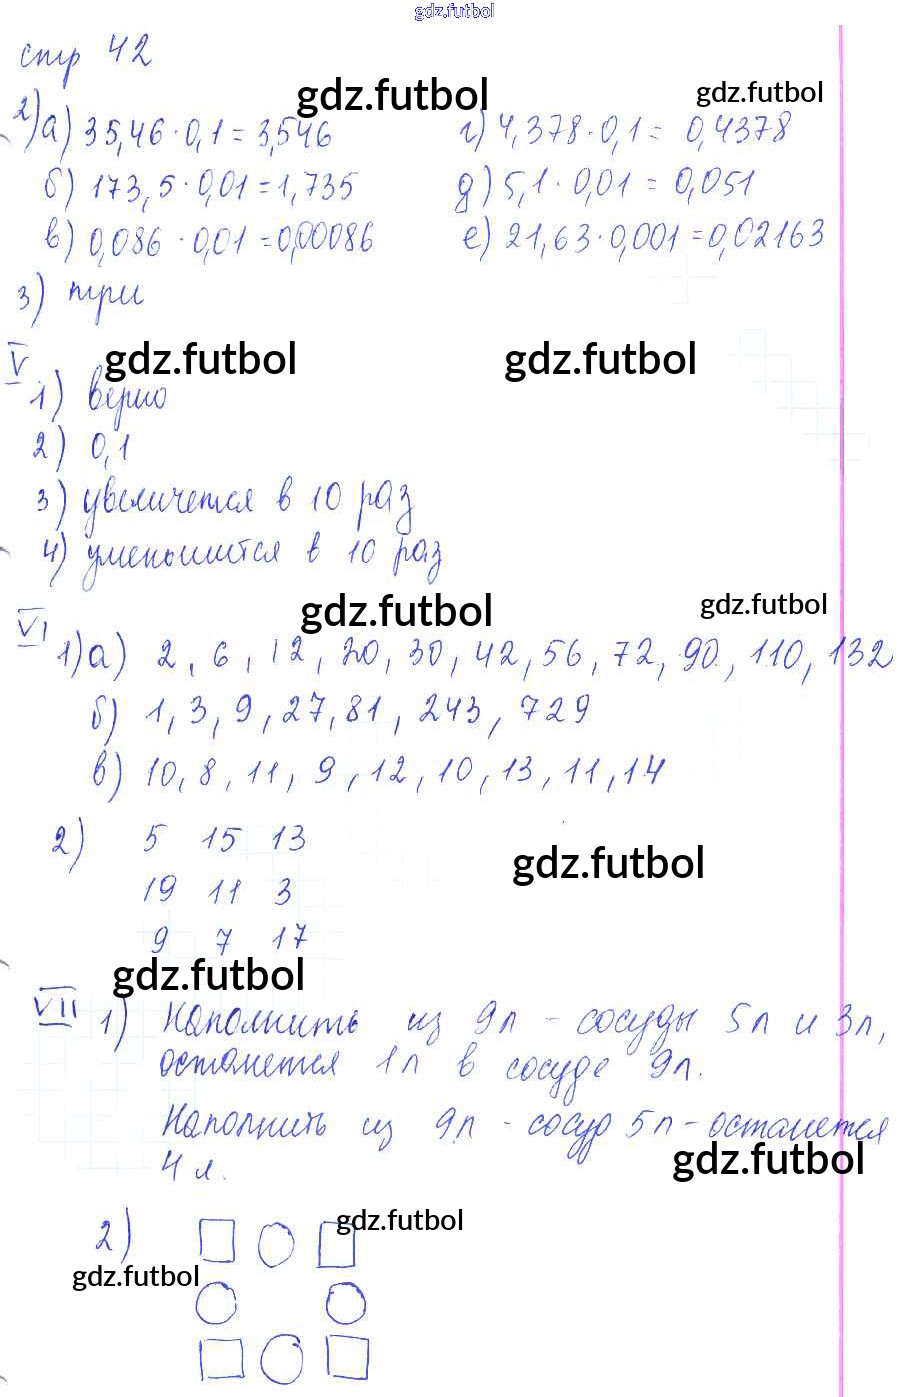 gdz.futbol
стр 42
gdz.futbol gdz.futbol
2) а) 35,46 · 0,1 = 3,546 г) 4,378 · 0,1 = 0,4378
б) 173,5 · 0,01 = 1,735 д) 5,1 · 0,01 = 0,051
в) 0,086 · 0,01 = 0,00086 е) 21,63 · 0,001 = 0,02163
3) три
gdz.futbol gdz.futbol
V
1) верно
2) 0,1
3) увеличется в 10 раз
4) уменьшится в 10 раз
gdz.futbol gdz.futbol
VI
1) а) 2, 6, 12, 20, 30, 42, 56, 72, 90, 110, 132
б) 1, 3, 9, 27, 81, 243, 729
в) 10, 8, 11, 9, 12, 10, 13, 11, 14
2) 5 15 13
gdz.futbol
19 11 3
9 7 17
gdz.futbol
VII 1) Наполнить из 9л - сосуды 5л и 3л,
останется 1л в сосуде 9л.
Наполнить из 9л - сосуд 5л - останется
4 л.
gdz.futbol
2)
gdz.futbol
gdz.futbol